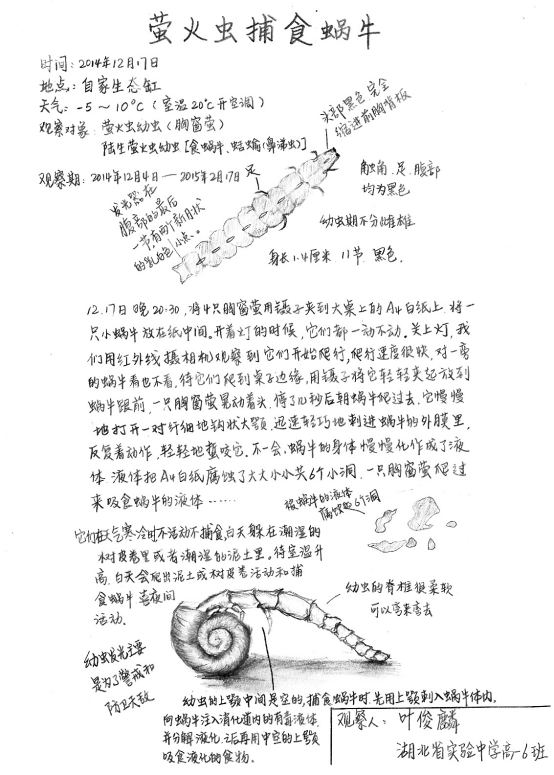 萤火虫捕食蜗牛
时间：2014年12月17日
地点：自家生态缸
天气：-5~10℃（室温20℃开空调）
观察对象：萤火虫幼虫（胸窗萤）
陆生萤火虫幼虫[食蜗牛、蛞蝓（鼻涕虫）]
观察期：2014年12月4日——2015年2月17日
头部黑色完全
缩进前胸背板
足
触角、足、腹部
均为黑色
发光器在
腹部的最后
一节有两个新月状
的乳白色小点。
幼虫期不分雌雄
身长1.4厘米 11节，黑色。
12.17日晚20:30，将4只胸窗萤用镊子夹到大桌上的A4白纸上，将一
只小蜗牛放在纸中间。开着灯的时候，它们都一动不动。关上灯，我
们用红外线摄相机观察到它们开始爬行，爬行速度很快，对一旁
的蜗牛看也不看。待它们爬到桌子边缘，用镊子将它轻轻夹起放到
蜗牛跟前，一只胸窗萤晃动着头，停了10秒后朝蜗牛爬过去，它慢慢
地打开一对纤细地钩状大颚，迅速轻巧地刺进蜗牛的外膜里，
反复着动作，轻轻地蜇咬它。不一会，蜗牛的身体慢慢化作成了液
体，液体把A4白纸腐蚀了大大小小共6个小洞，一只胸窗萤爬过
来吸食蜗牛的液体……
被蜗牛的液体
腐蚀的6个洞
它们在天气寒冷时不活动不捕食，白天躲在潮湿的
树皮卷里或者潮湿的泥土里。待室温升
高，白天会爬出泥土或树皮卷活动和捕
食蜗牛，喜夜间
活动。
幼虫的脊椎很柔软
可以弯来弯去
幼虫发光主要
是为了警戒和
防卫天敌
幼虫的上颚中间是空的，捕食蜗牛时，先用上颚刺入蜗牛体内，
向蜗牛注入消化道内的有毒液体，
并分解液化，之后再用中空的上颚
吸食液化的食物。
观察人：叶俊麟
湖北省实验中学高一6班